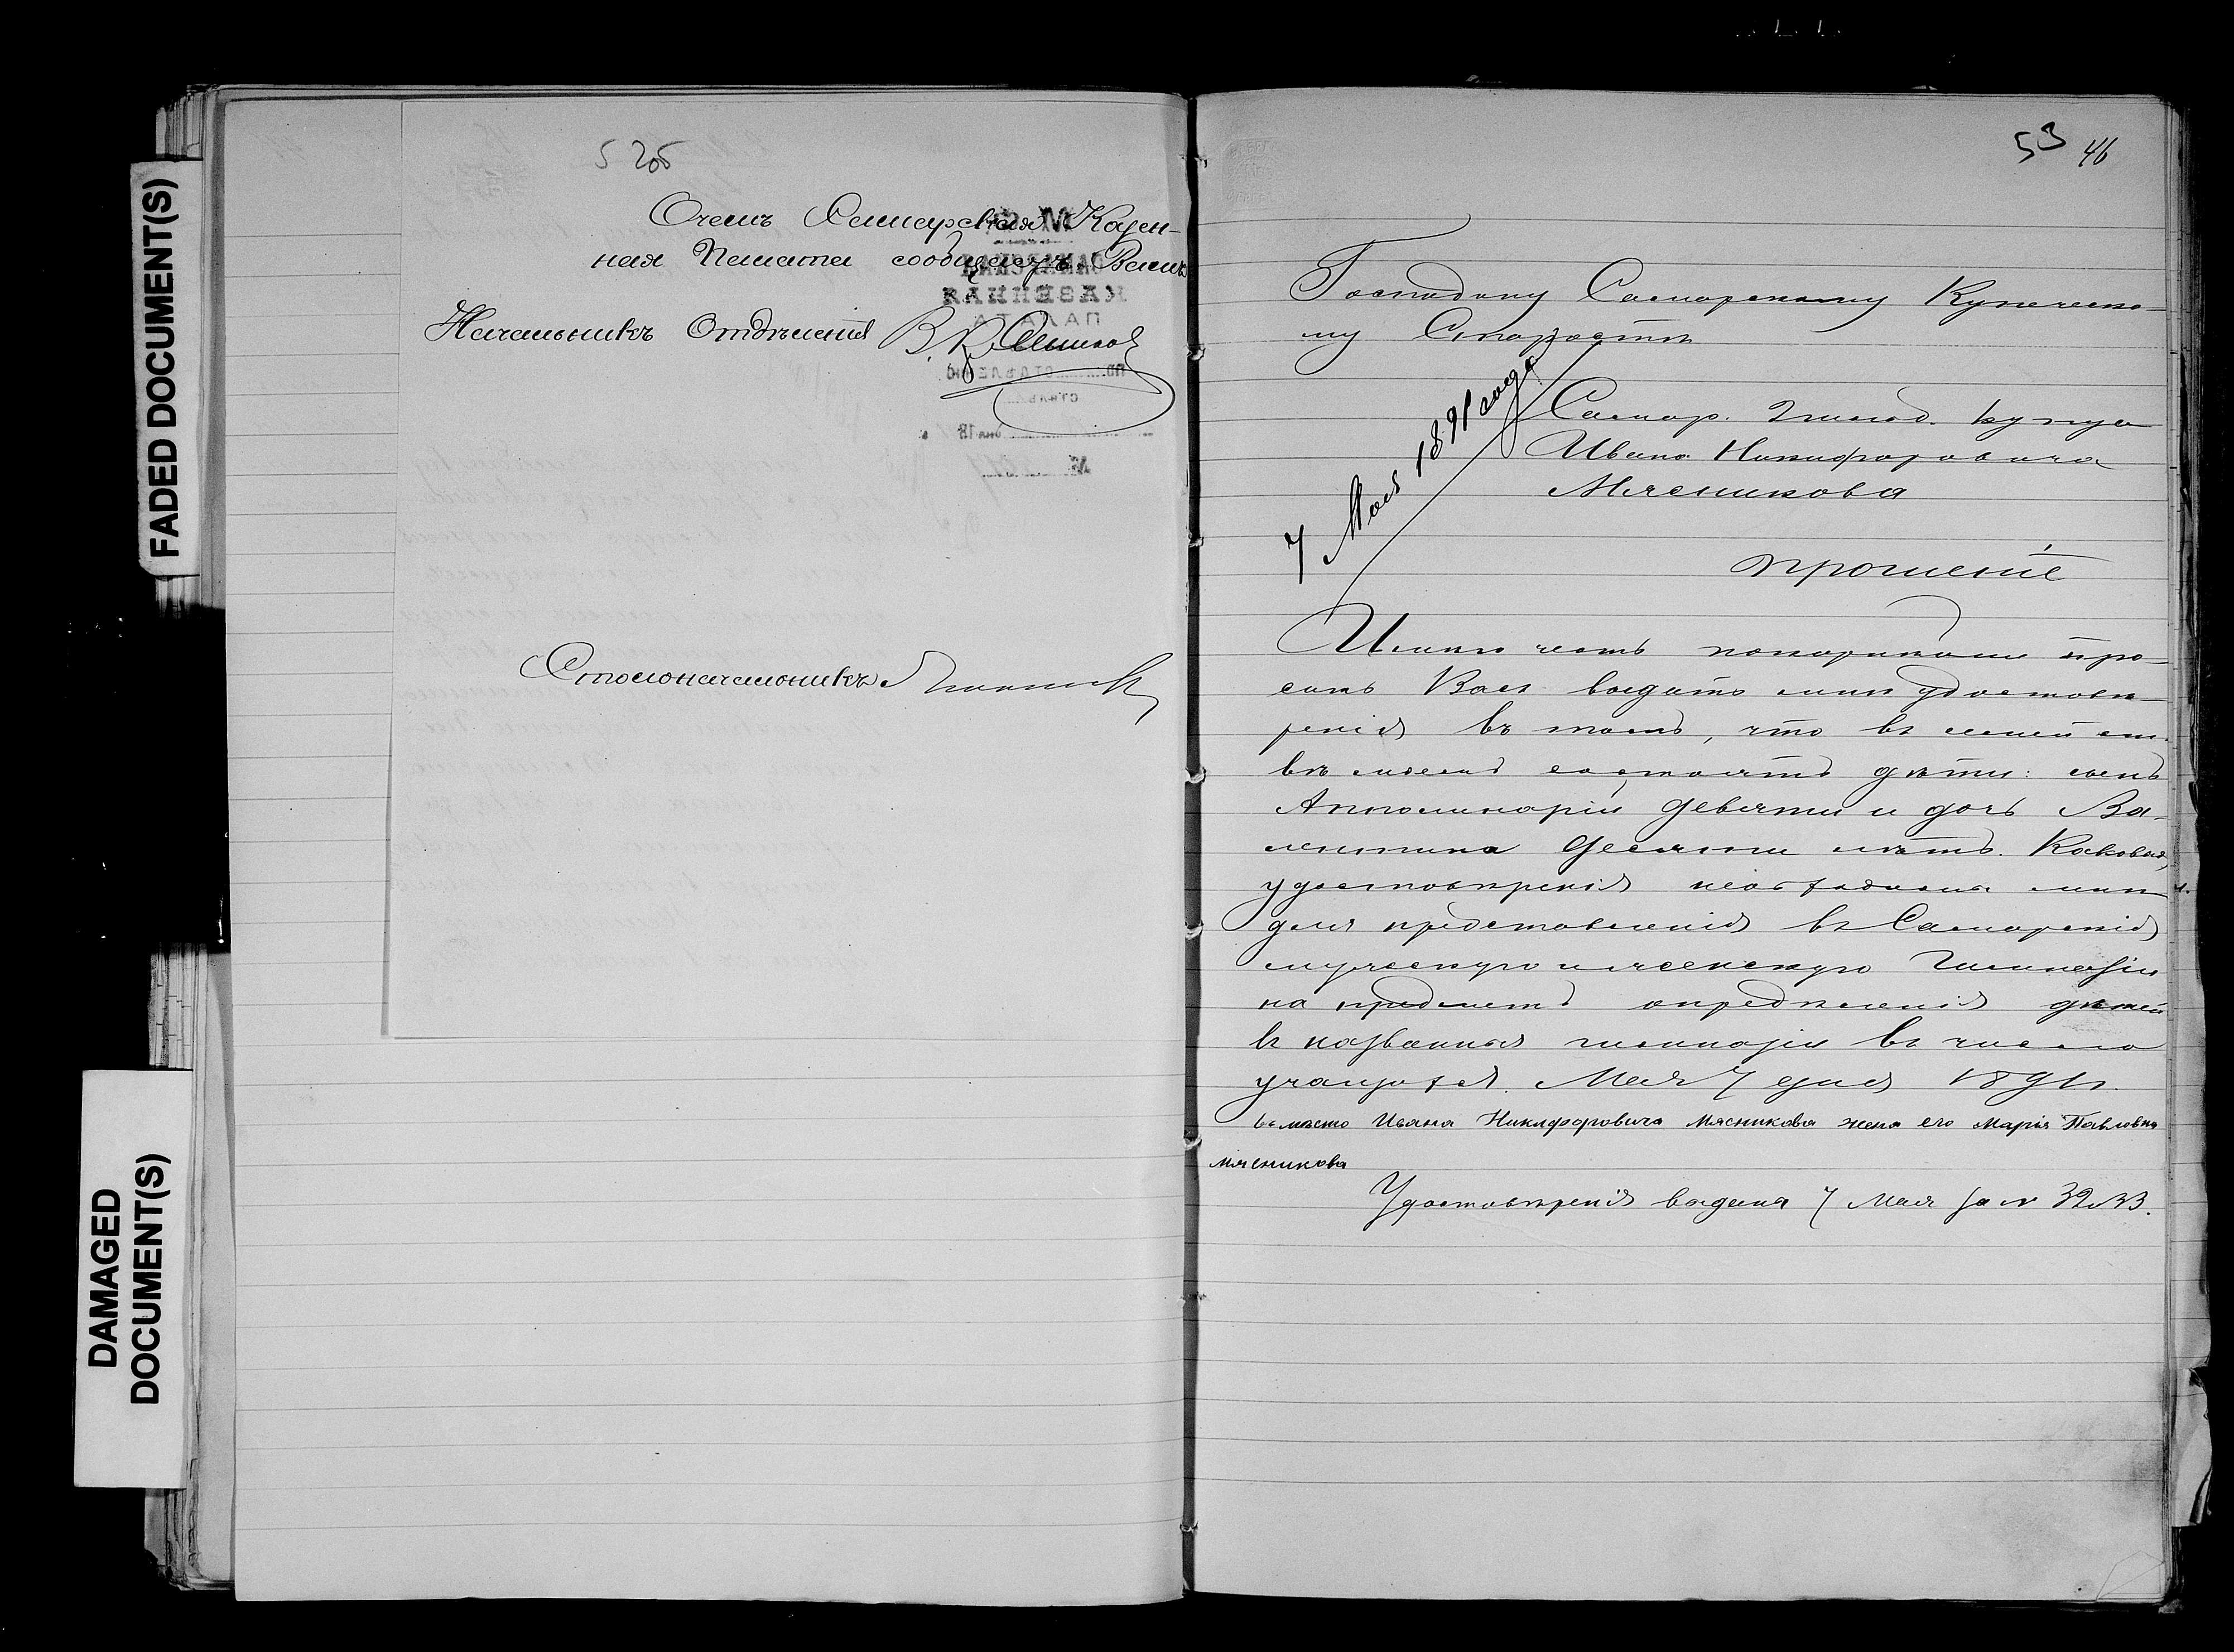 FADED DOCUMENT(S)
DAMAGED
DOCUMENT(S)
52об
О чемъ Самарская Казен-
ная Палата сообщаетъ Вамъ
Начальникъ Отдѣленія В.
Столоначальникъ
53 46
Господину Самарскому Купеческо-
му Старостѣ
7 Мая 1891 года
Самар. 2 гильд. купца
Ивана Никифоровича
Мясникова
Прошеніе
Имѣю честь покорнѣйше про-
сить Васъ выдать мнѣ удостовѣ-
ренія въ томъ, что въ семей-
ствѣ моемъ состоятъ дѣти: сынъ
Апполинарій девяти и дочь Ва-
лентина десяти лѣтъ. Каковыя
удостовѣренія необходимы мнѣ
для представленія въ Самарскія
мужескую и женскую Гимназіи
на предметъ опредѣленія дѣтей
въ названныя гимназіи въ число
учащихся. Мая 7 дня 1891 г.
вмѣсто Ивана Никифоровича Мясникова жена его Марія Павловна
Мясникова
Удостовѣренія выданы 7 Мая за № 32 и 33.